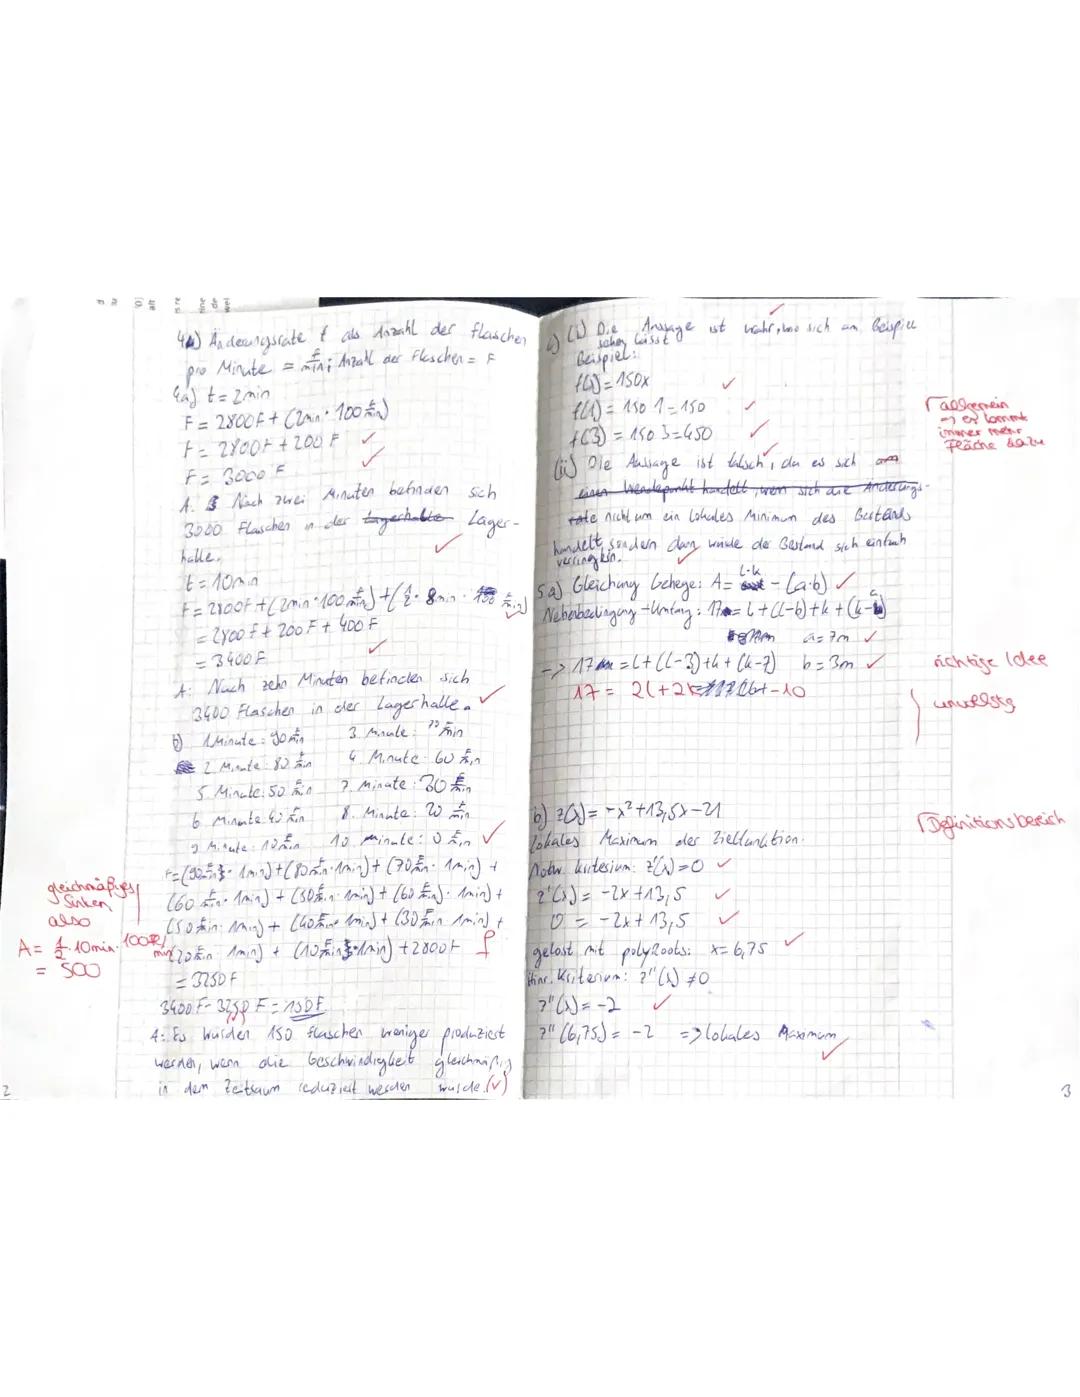 4a) Änderungsrate f als Anzahl der Flaschen
pro Minute = F/min; Anzahl der Flaschen = F
4a) t = 2min
F = 2800F + (2min · 100 F/min)
F = 2800F + 200 F
F = 3000 F
A: Nach zwei Minuten befinden sich
3000 Flaschen in der Lagerhalle Lager-
halle.
t = 10min
F = 2800F + (2min · 100 F/min) + (1/2 · 8min · 100 F/min)
= 2800 F + 200 F + 400 F
= 3400 F
A: Nach zehn Minuten befinden sich
3400 Flaschen in der Lagerhalle.
b) 1 Minute: 90 F/min 3. Minute: 70 F/min
2 Minute: 80 F/min 4. Minute: 60 F/min
5 Minute: 50 F/min 7. Minute: 30 F/min
6 Minute 40 F/min 8. Minute: 20 F/min
9 Minute: 10 F/min 10. Minute: 0 F/min
F = (90 F/min · 1min) + (80 F/min · 1min) + (70 F/min · 1min) +
(60 F/min · 1min) + (50 F/min · 1min) + (60 F/min) · 1min) +
(50 F/min · 1min) + (40 F/min · 1min) + (30 F/min · 1min) +
(20 F/min · 1min) + (10 F/min · 1min) + 2800 F f
= 3250 F
3400 F - 3250 F = 150 F
A: Es wurden 150 Flaschen weniger produziert
werden, wenn die Geschwindigkeit gleichmäßig
in dem Zeitraum reduziert werden wurde. (✓)
gleichmäßiges
Sinken
also
A = 1/2 · 10min · 100 F/min
= 500
2
c) (i) Die Aussage ist wahr, wo sich am Beispiel
sehen lässt
Beispiel:
f(x) = 150x
f(1) = 150 · 1 = 150
f(3) = 150 · 3 = 450
(ii) Die Aussage ist falsch, da es sich
einen Wendepunkt handelt, wenn sich die Änderungs-
rate nicht um ein lokales Minimum des Bestands
handelt, sondern dann wurde der Bestand sich einfach
verringern.
Γ allgemein
→ es kommt
immer mehr
Fläche dazu
5a) Gleichung Gehege: A = L·k - (a·b)
Nebenbedingung Umfang: 17 = L + (L-b) + k + (k-a)
a = 7m
-> 17 = L + (L-3) + k + (k-7) b = 3m
17 = 2L + 2k - 10
richtige Idee
unvollstg
b) z(x) = -x² + 13,5x - 21
Lokales Maximum der Zielfunktion.
Γ Definitionsbereich
Notw. Kriterium: z'(x) = 0
z'(x) = -2x + 13,5
0 = -2x + 13,5
gelöst mit polyRoots: x = 6,75
Hinr. Kriterium: z''(x) ≠ 0
z''(x) = -2
z''(6,75) = -2 => lokales Maximum
3